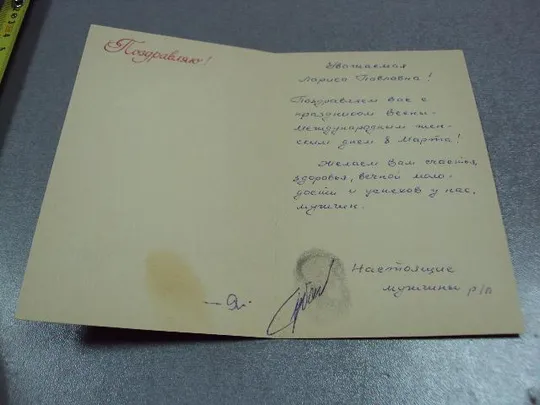 Поздравляю!
Уважаемая
Лариса Павловна!
Поздравляем Вас с
праздником Весны-
международным жен-
ским днем 8 Марта!
Желаем Вам счастья,
здоровья, вечной моло-
дости и успехов у нас,
мужчин.
Настоящие
мужчины р/п